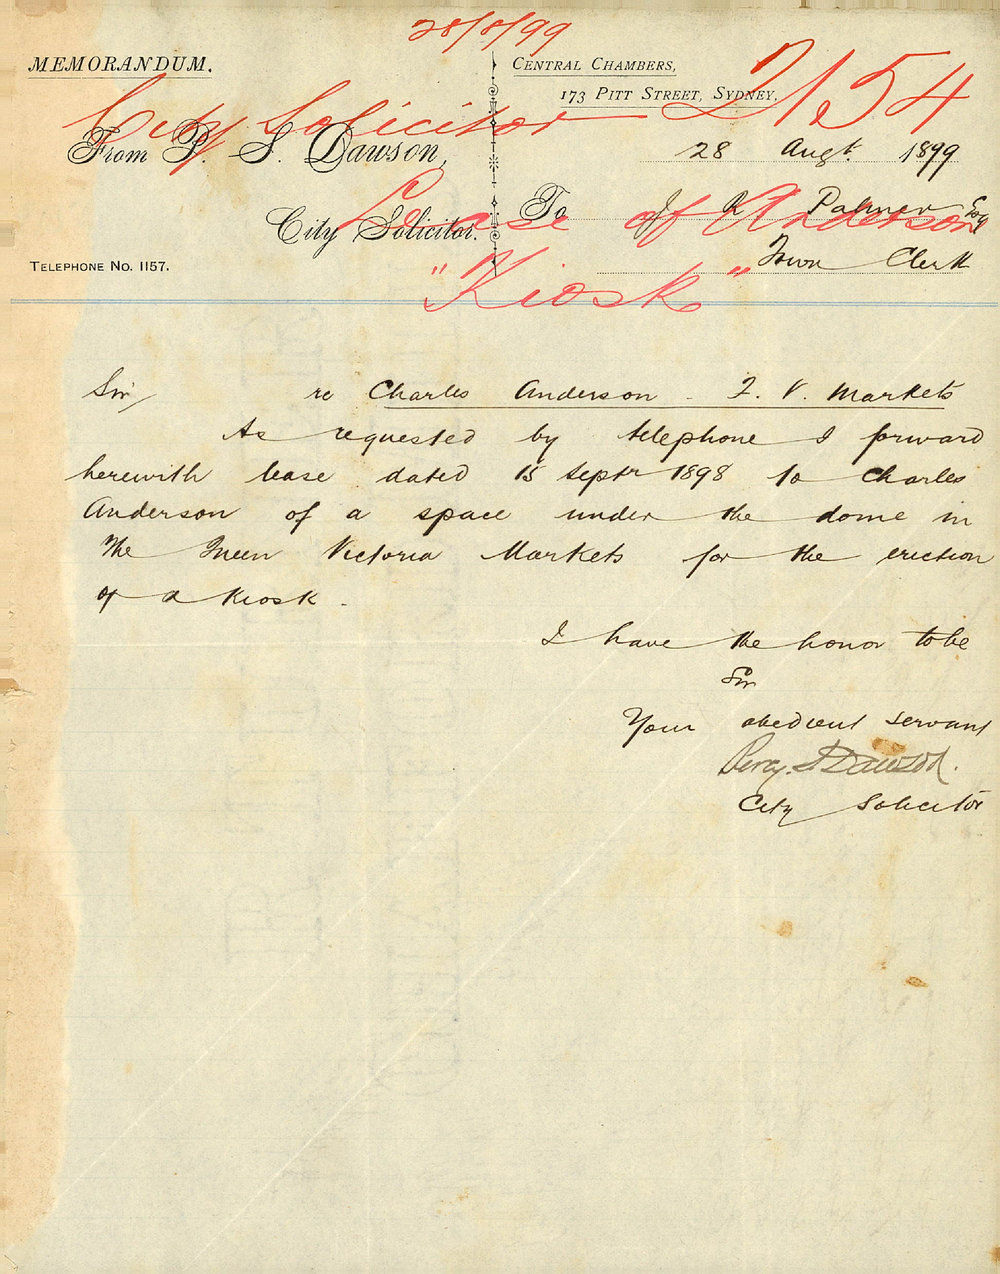 28/8/99
MEMORANDUM.
CENTRAL CHAMBERS,
173 PITT STREET, SYDNEY,
City Solicitor 2154
From P. S. Dawson,
28 Augt. 1899
City Solicitor.
To J R Palmer Esq
Lease of Anderson
Town Clerk
TELEPHONE No. 1157.
"Kiosk"
Sir, re Charles Anderson - Q. V. Markets
As requested by telephone I forward
herewith lease dated 15 Septr 1898 to Charles
Anderson of a space under the dome in
the Queen Victoria Markets for the erection
of a Kiosk.
I have the honor to be
Sir
Your obedient servant
Percy. S Dawson.
City Solicitor